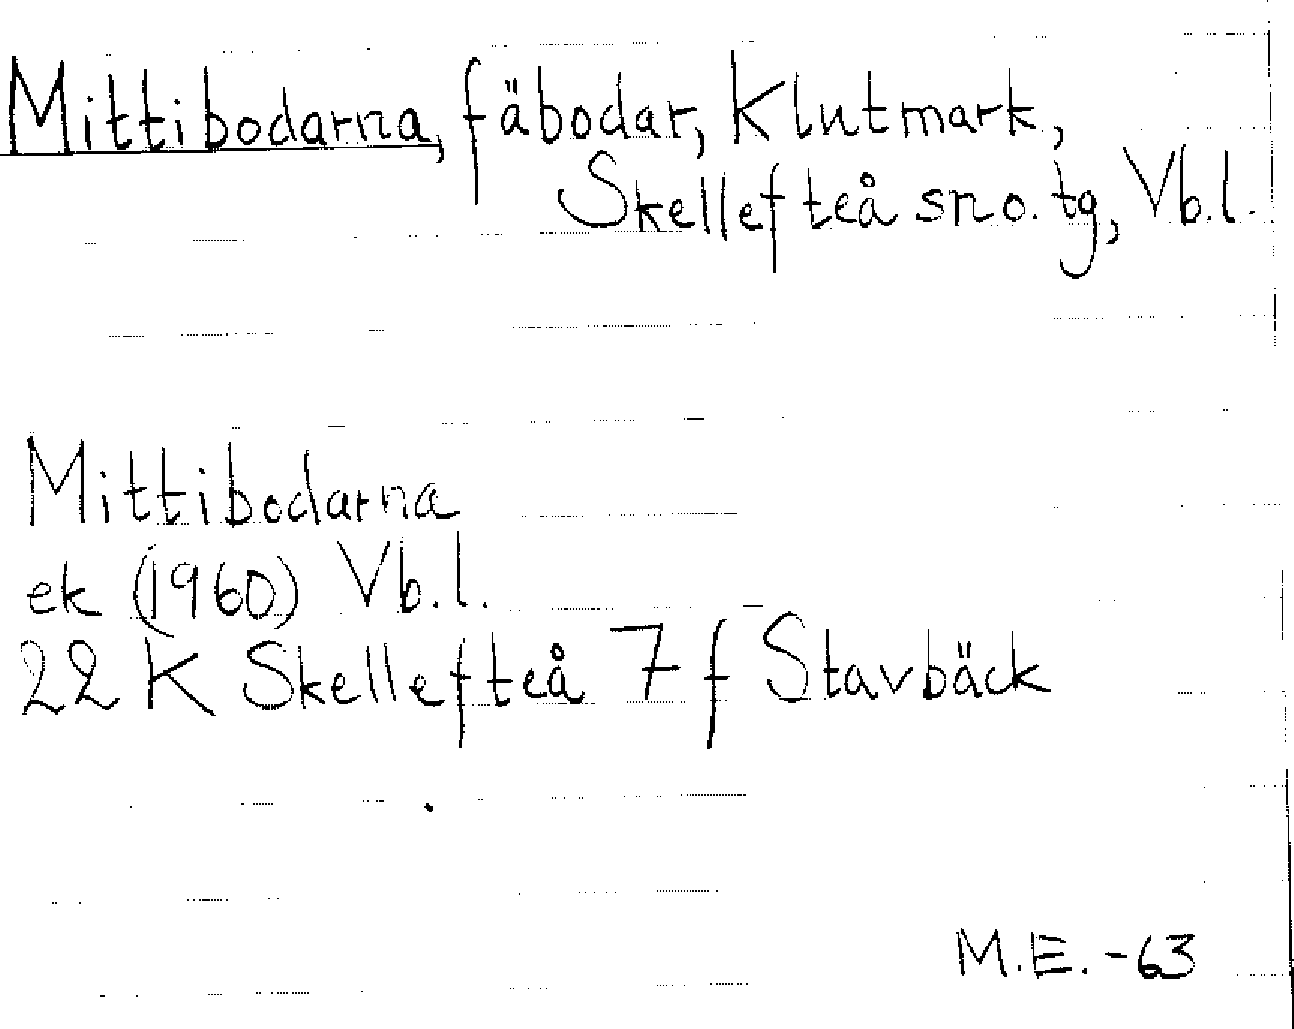 Mittibodarna, fäbodar, Klutmark,
Skellefteå sn o. tg, Vb.l.
Mittibodarna
ek (1960) Vb.l.
22 K Skellefteå 7 f Stavbäck
M.E. -63